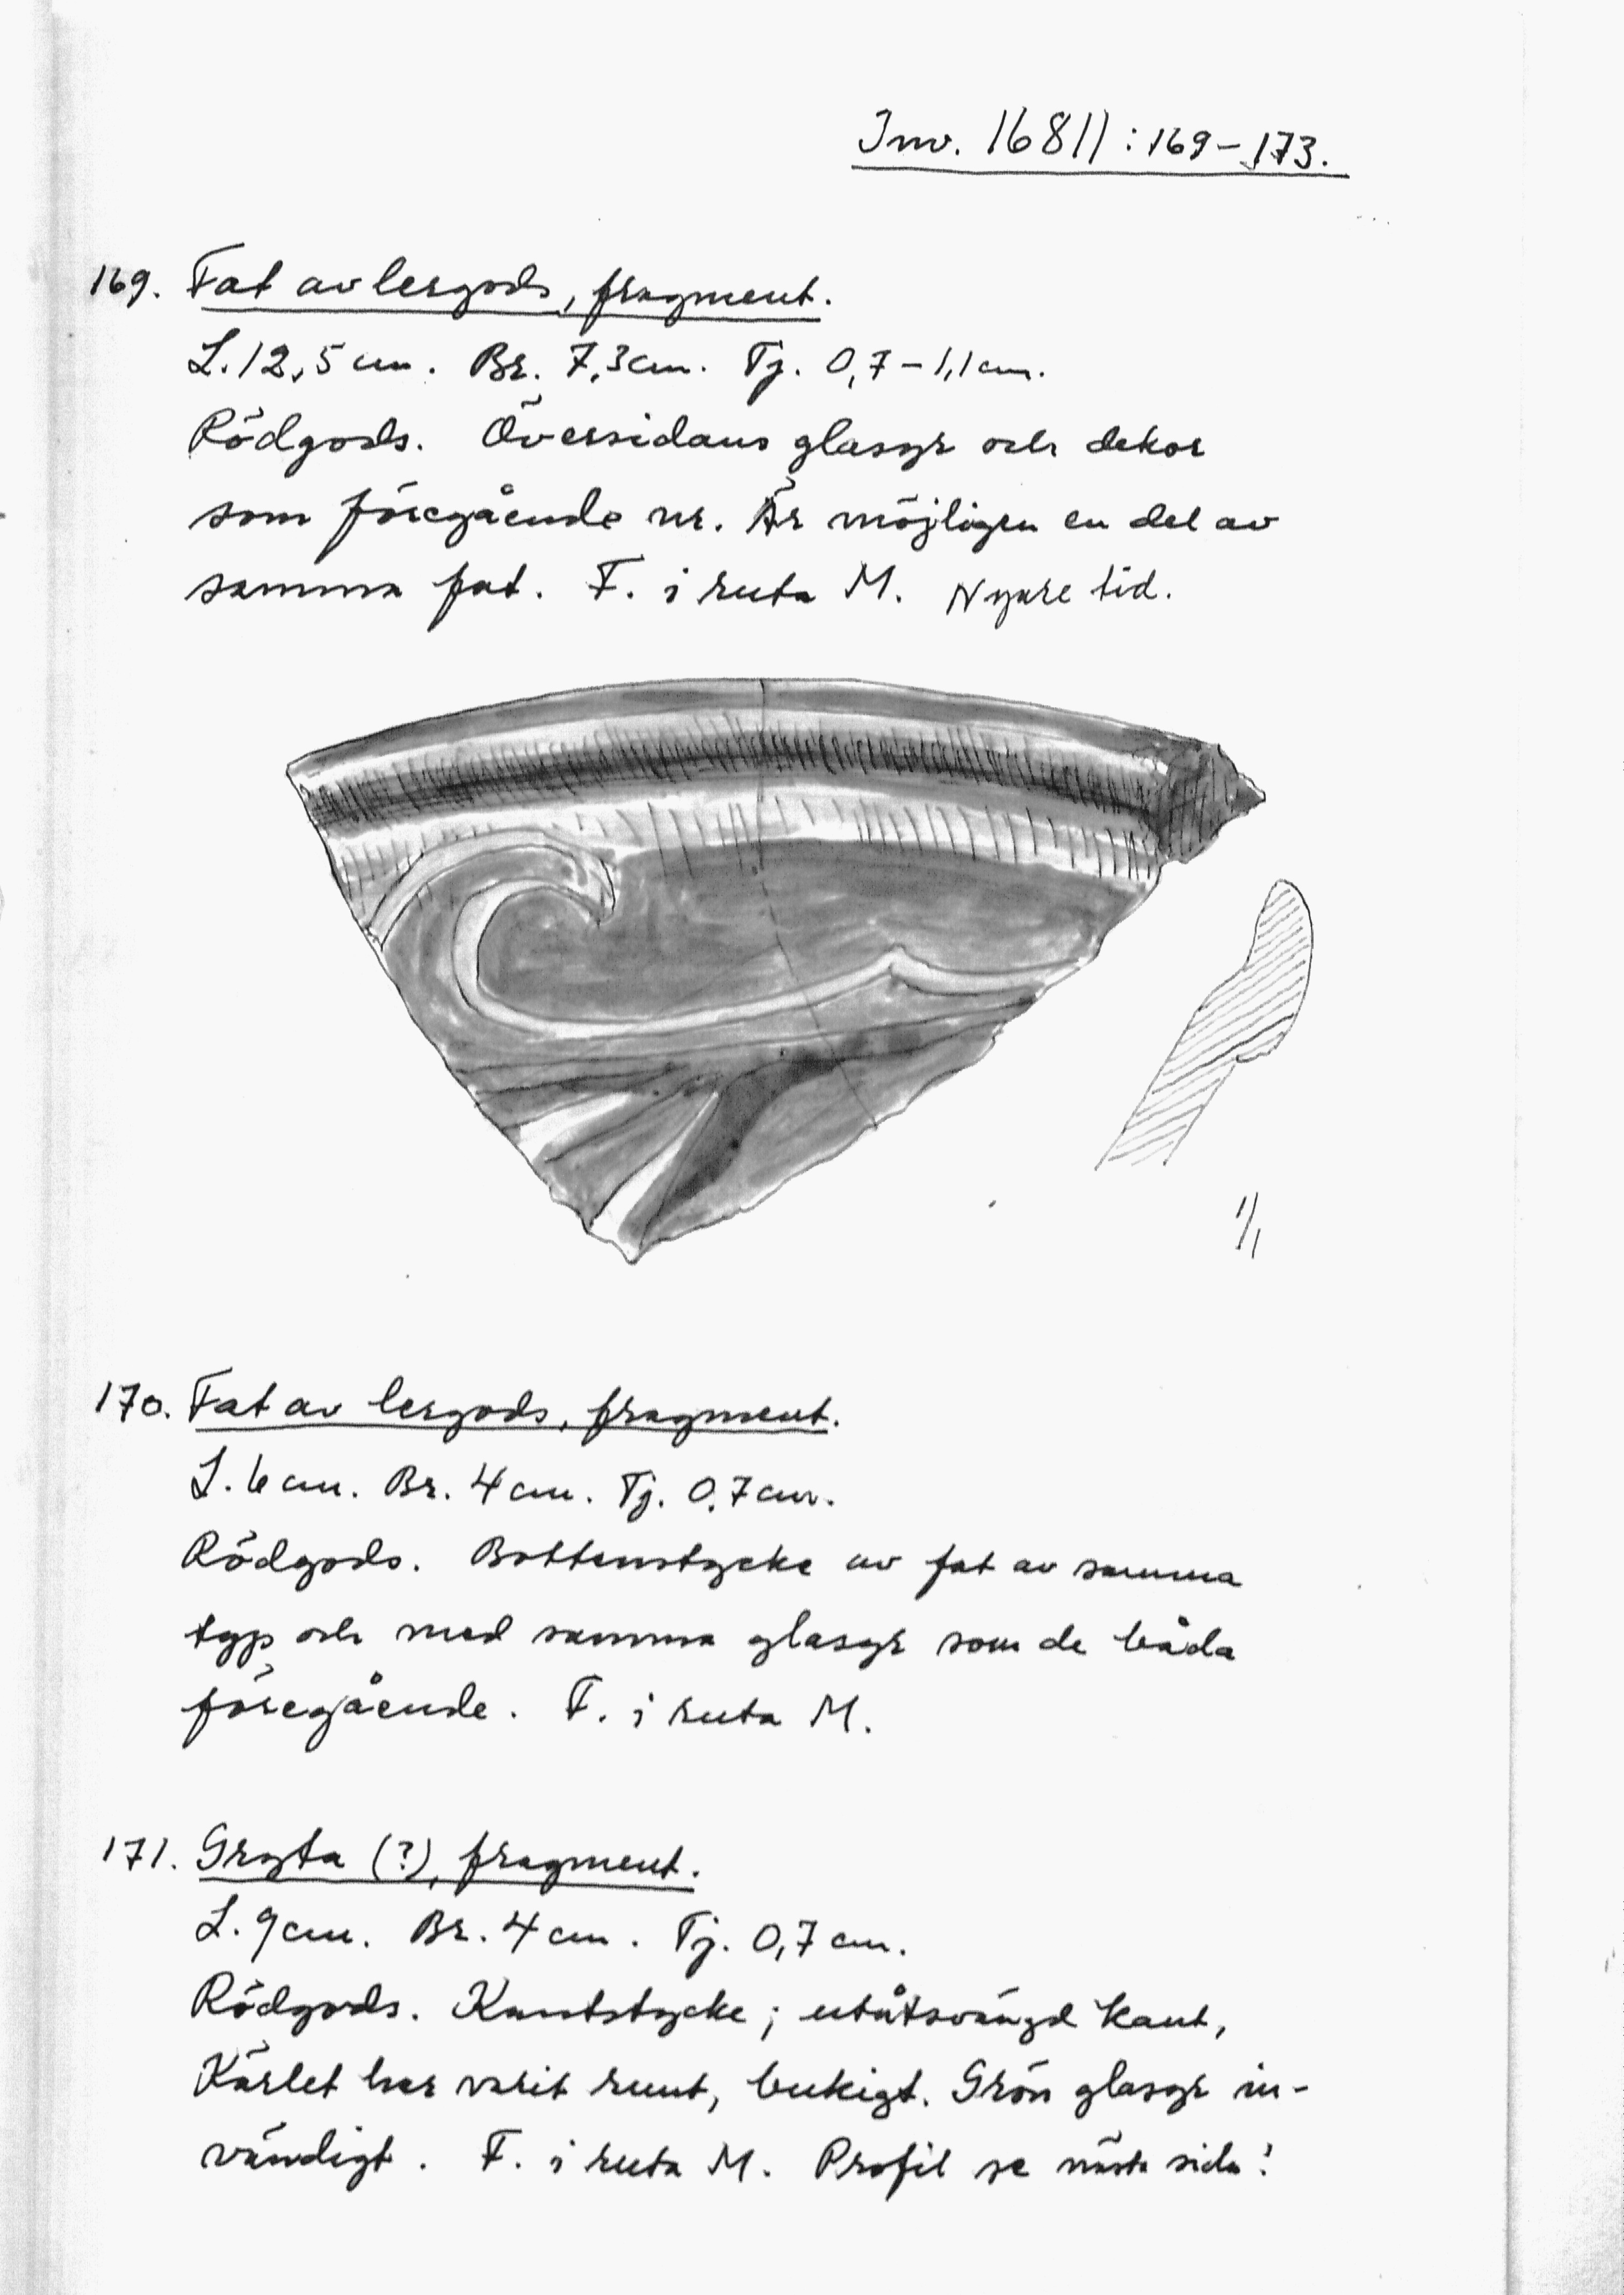 Inv. 16811:169-173.
169. Fat av lergods, fragment.
L. 12,5 cm. Br. 7,3 cm. Tj. 0,7-1,1 cm.
Rödgods. Översidans glasyr och dekor
som föregående nr. Är möjligen en del av
samma fat. F. i ruta M. Nyare tid.
1/1
170. Fat av lergods, fragment.
L. 6 cm. Br. 4 cm. Tj. 0,7 cm.
Rödgods. Bottenstycke av fat av samma
typ och med samma glasyr som de båda
föregående. F. i ruta M.
171. Gryta (?), fragment.
L. 9 cm. Br. 4 cm. Tj. 0,7 cm.
Rödgods. Kantstycke; utåtsvängd kant,
Kärlet har varit runt, bukigt. Grön glasyr in-
vändigt. F. i ruta M. Profil se nästa sida!